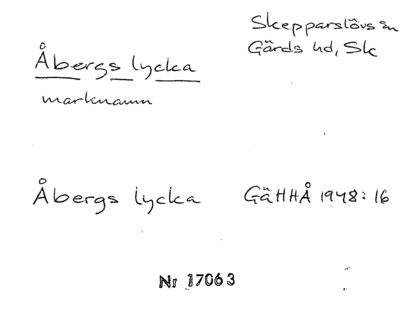 Åbergs lycka
marknamn
Skepparslövs sn
Gärds hd, Sk
Åbergs lycka GäHHÅ 1948: 16
Nr 17063